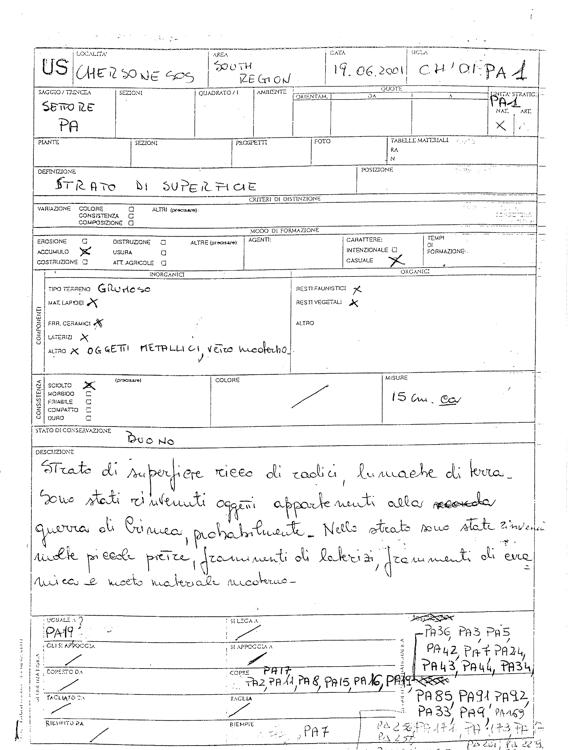 US
LOCALITA'
CHERSONESOS
AREA
SOUTH
REGION
DATA
19.06.2001
SIGLA
CH'01 PA 1
SAGGIO / TRINCEA
SETTORE
PA
SEZIONI
QUADRATO / I
AMBIENTE
QUOTE
ORIENTAM.
DA
A
UNITA' STRATIG.
PA1
NAT. ART.
X
PIANTE
SEZIONI
PROSPETTI
FOTO
TABELLE MATERIALI
RA
N
DEFINIZIONE
STRATO DI SUPERFICIE
POSIZIONE
CRITERI DI DISTINZIONE
VARIAZIONE COLORE ALTRI (precisare)
CONSISTENZA
COMPOSIZIONE
MODO DI FORMAZIONE
EROSIONE DISTRUZIONE ALTRE (precisare) AGENTI: CARATTERE: TEMPI
ACCUMULO X USURA INTENZIONALE DI
COSTRUZIONE ATT. AGRICOLE CASUALE X FORMAZIONE
COMPONENTI
INORGANICI
ORGANICI
TIPO TERRENO GRUMOSO
MAT. LAPIDEI X
FRR. CERAMICI X
LATERIZI X
ALTRO X OGGETTI METALLICI, vetro moderno.
RESTI FAUNISTICI X
RESTI VEGETALI X
ALTRO
CONSISTENZA
SCIOLTO X (precisare)
MORBIDO
FRIABILE
COMPATTO
DURO
COLORE
MISURE
15 cm. ca
STATO DI CONSERVAZIONE
BUONO
DESCRIZIONE
Strato di superficie ricco di radici, lumache di terra.
Sono stati rinvenuti oggetti appartenenti alla
guerra di Crimea, probabilmente. Nello strato sono state rinvenute
molte piccole pietre, frammenti di laterizi, frammenti di cera
mica e molto materiale moderno.
UGUALE A ?
PA19
SI LEGA A
GLI SI APPOGGIA
SI APPOGGIA A
COPERTO DA
COPRE PA17
PA2, PA11, PA8, PA15, PA16, PA19
TAGLIATO DA
TAGLIA
RIEMPITO DA
RIEMPIE
PA7
PA36, PA3, PA5,
PA42, PA7 PA24,
PA43, PA44, PA34,
PA85 PA91 PA92,
PA33, PA9, PA169
PA171